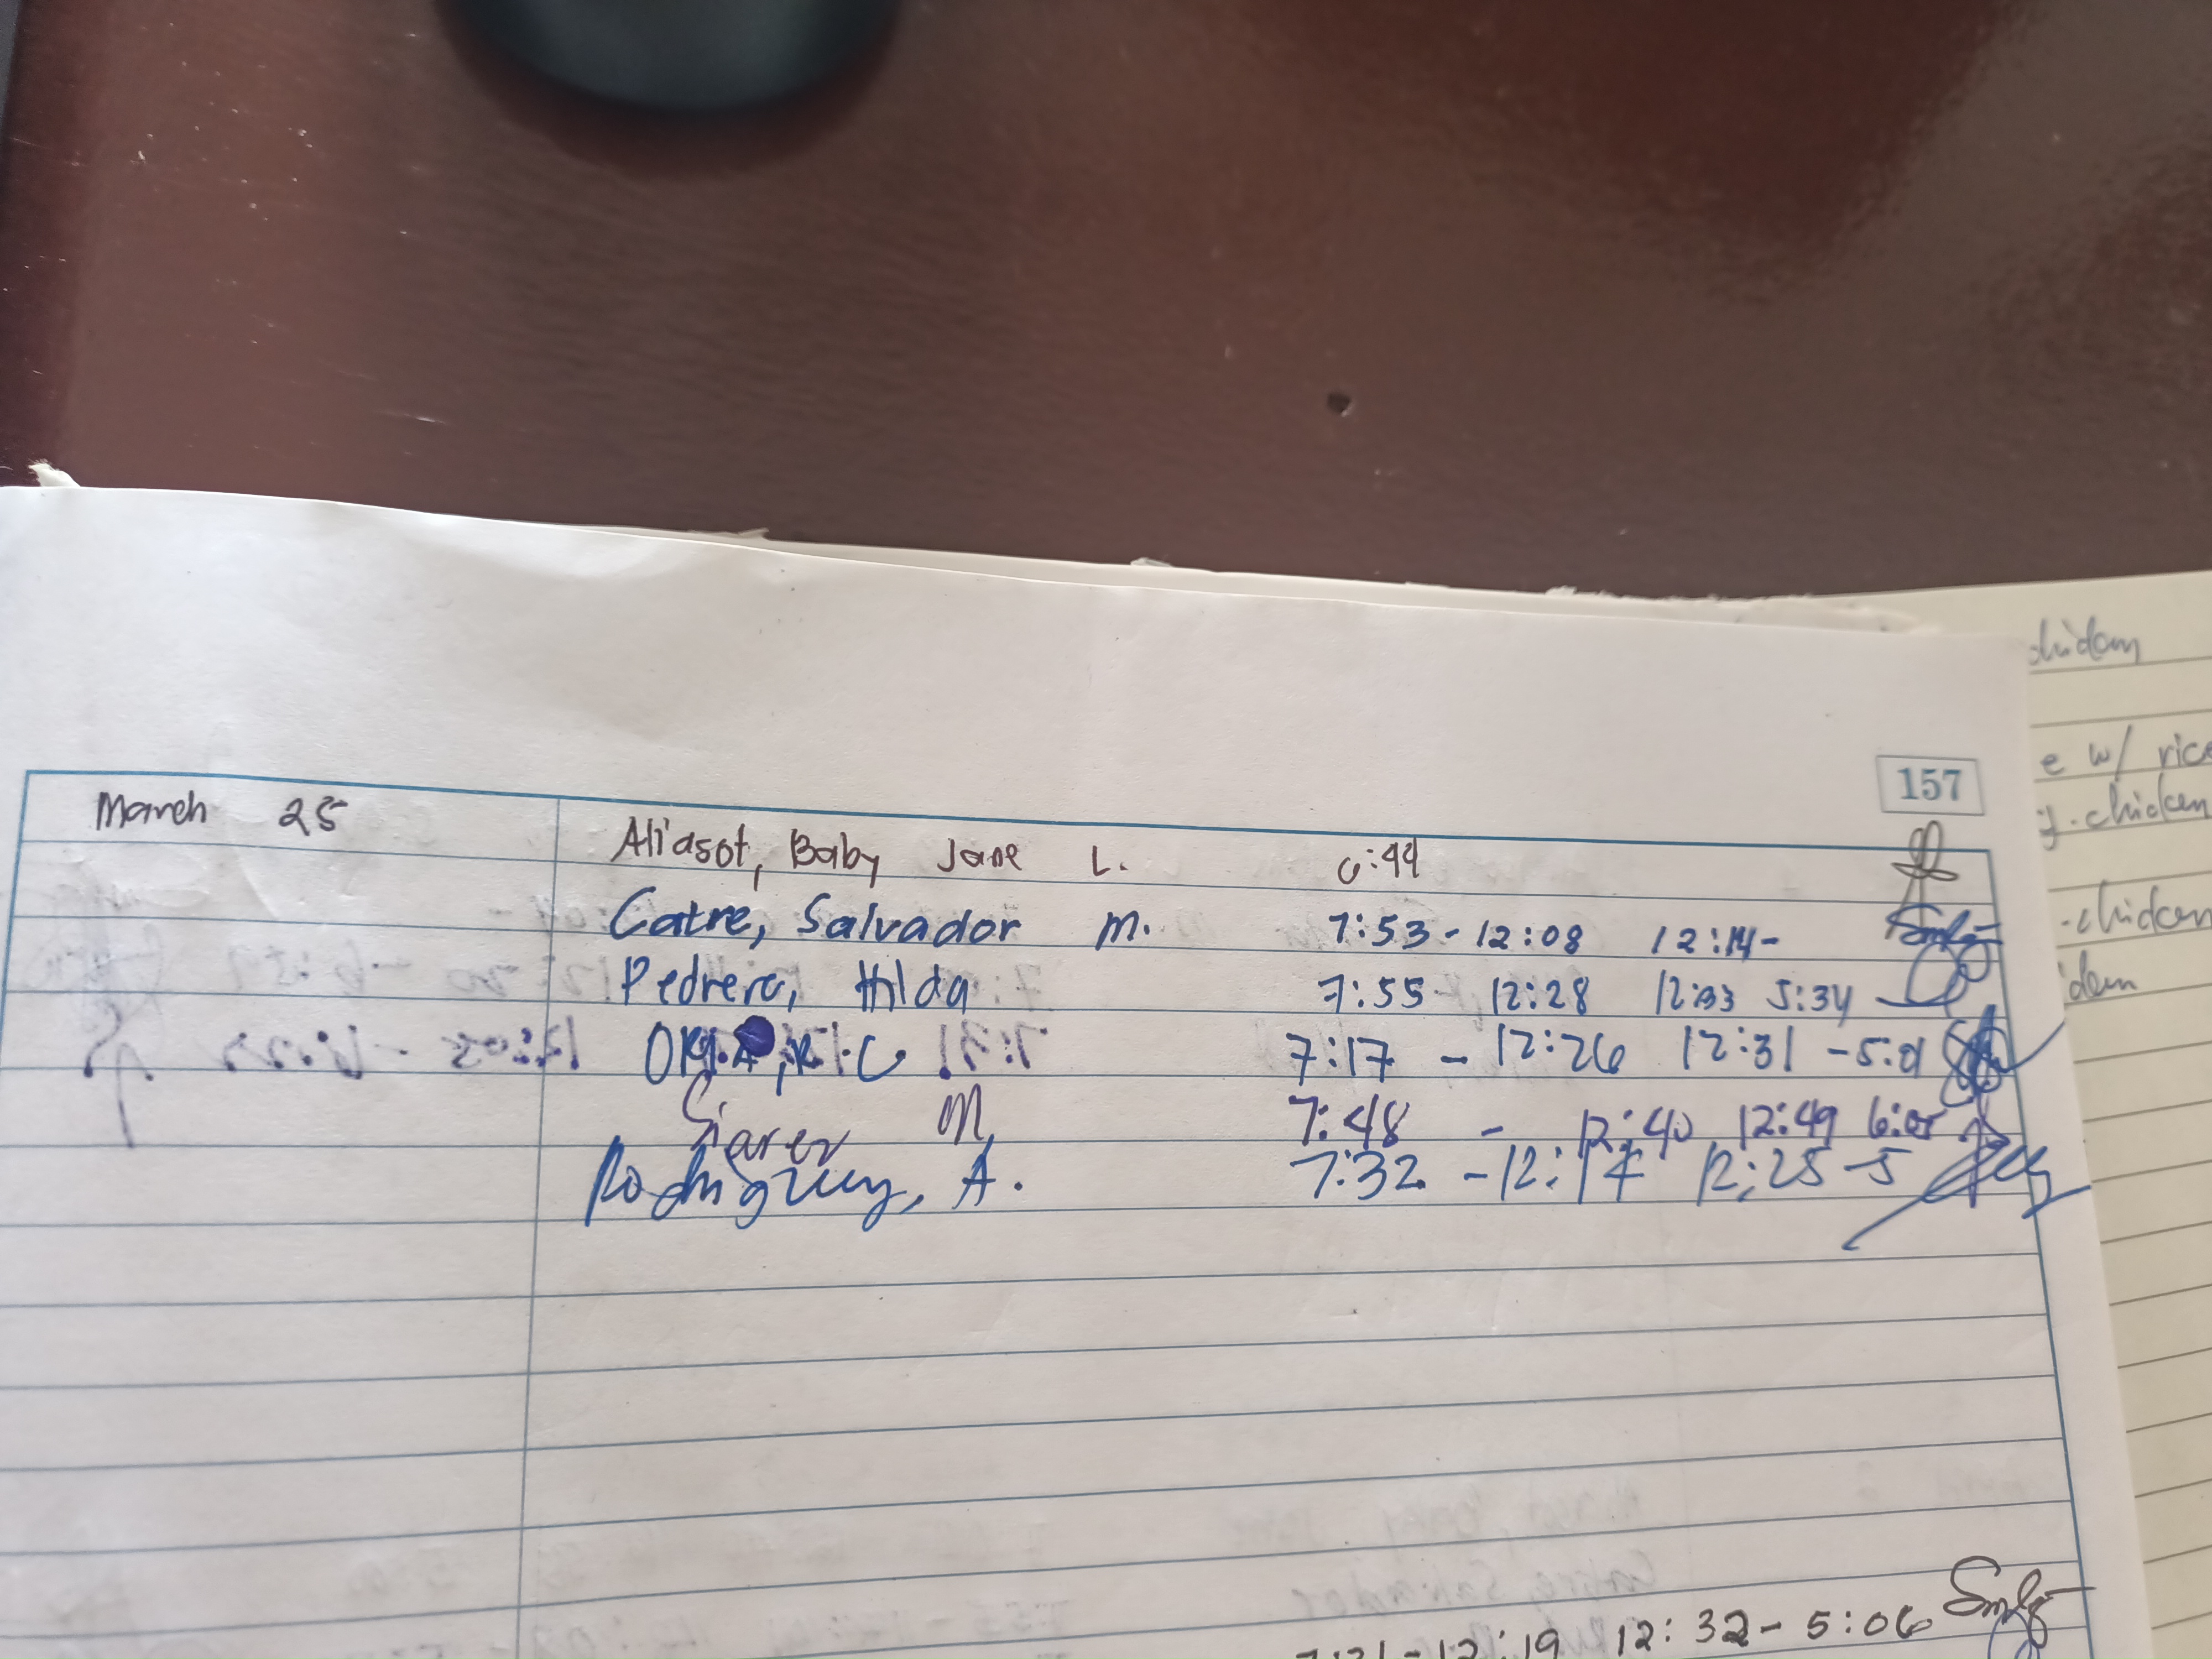 157
March 25
Aliasot, Baby Jane L. 6:44
Catre, Salvador M. 7:53 - 12:08 12:14 -
Pedrera, Hilda 7:55 12:28 12:33 5:34
7:17 - 12:26 12:31 - 5:01
M 7:48 - 12:40 12:49 6:05
Rodriguez, A. 7:32 - 12:14 12:25 - 5
7:31 - 12:19 12:32 - 5:06
e w/ rice
chicken
-chicken